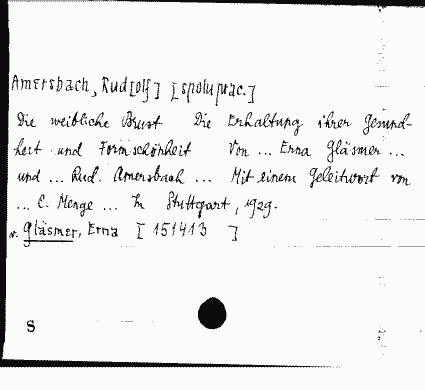 Amersbach, Rud[olf] [spoluprac.]
Die weibliche Brust Die Erhaltung ihrer Gesund-
heit und Formschönheit Von ... Erna Gläsmer ...
und ... Rud. Amersbach ... Mit einem Geleitwort von
... C. Menge ... In Stuttgart, 1929.
v. Gläsmer, Erna [ 151413 ]
S